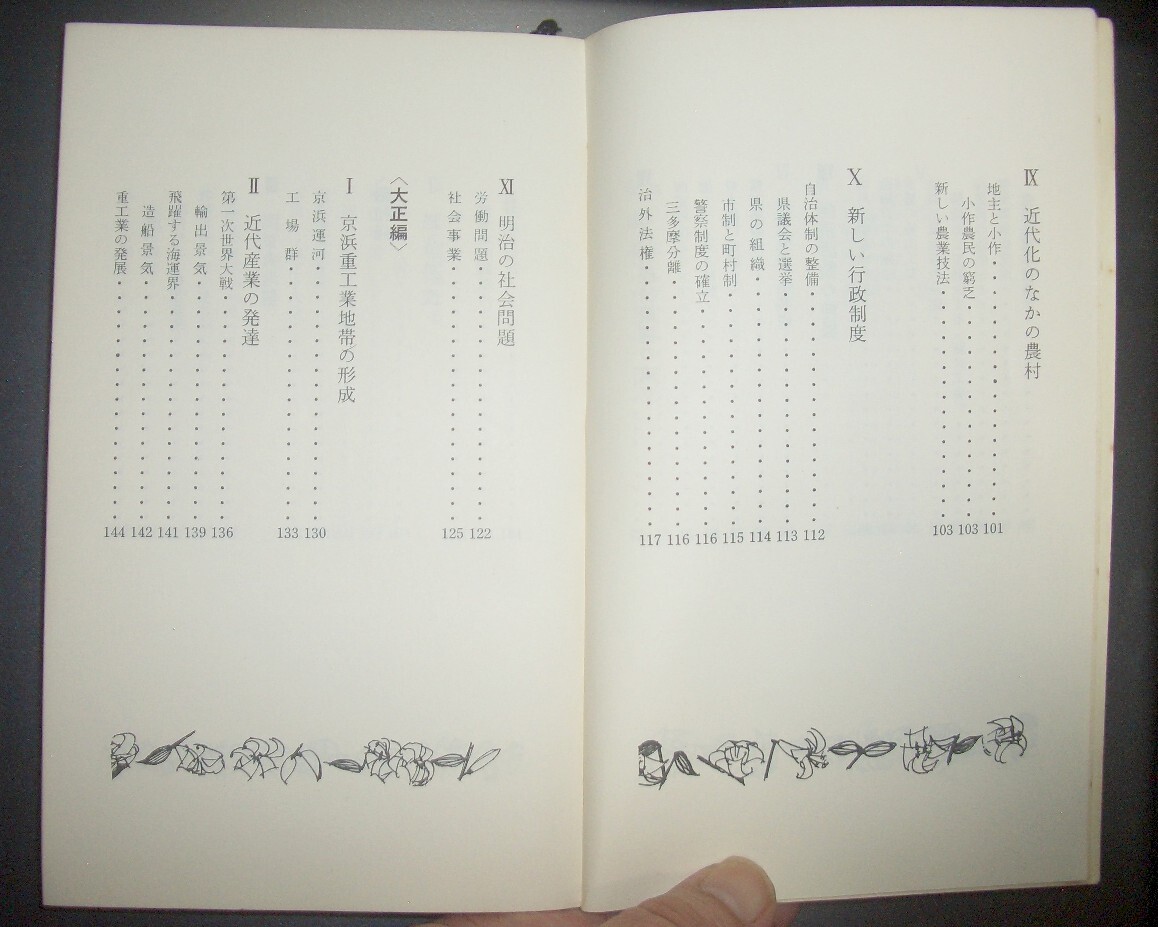 Ⅸ 近代化のなかの農村
地主と小作・・・・・・・・・・・・・・・・・・101
小作農民の窮乏・・・・・・・・・・・・・・・・103
新しい農業技法・・・・・・・・・・・・・・・・・103
Ⅹ 新しい行政制度
自治体制の整備・・・・・・・・・・・・・・・・・112
県議会と選挙・・・・・・・・・・・・・・・・・113
県の組織・・・・・・・・・・・・・・・・・・114
市制と町村制・・・・・・・・・・・・・・・・・115
警察制度の確立・・・・・・・・・・・・・・・・116
三多摩分離・・・・・・・・・・・・・・・・・・116
治外法権・・・・・・・・・・・・・・・・・・・117
Ⅺ 明治の社会問題
労働問題・・・・・・・・・・・・・・・・・・122
社会事業・・・・・・・・・・・・・・・・・・125
〈大正編〉
Ⅰ 京浜重工業地帯の形成
京浜運河・・・・・・・・・・・・・・・・・・130
工場群・・・・・・・・・・・・・・・・・・133
Ⅱ 近代産業の発達
第一次世界大戦・・・・・・・・・・・・・・・・136
輸出景気・・・・・・・・・・・・・・・・・139
飛躍する海運界・・・・・・・・・・・・・・・・141
造船景気・・・・・・・・・・・・・・・・・142
重工業の発展・・・・・・・・・・・・・・・・・144